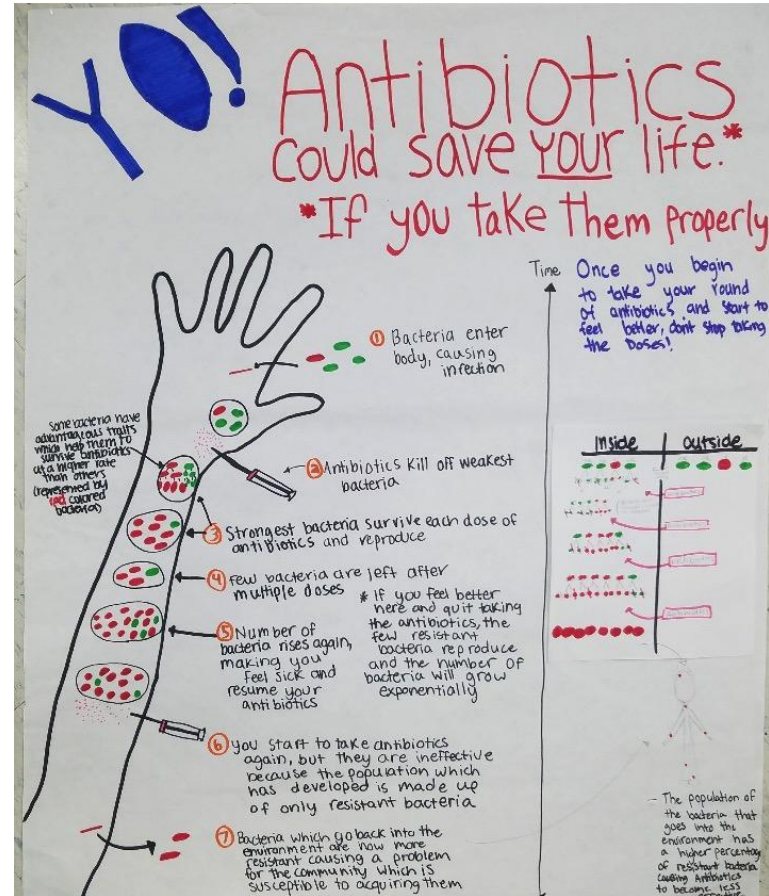 YO!
Antibiotics
could save YOUR life.*
*If you take them properly
Time
Once you begin
to take your round
of antibiotics and start to
feel better, dont stop taking
the Doses!
① Bacteria enter
body, causing
infection
Some bacteria have
advantageous traits
which help them to
survive antibiotics
at a higher rate
than others
(represented by
red colored
bacteria)
② Antibiotics kill off weakest
bacteria
③ Strongest bacteria survive each dose of
antibiotics and reproduce
④ Few bacteria are left after
multiple doses
* If you feel better
here and quit taking
the antibiotics, the
few resistant
bacteria reproduce
and the number of
bacteria will grow
exponentially
⑤ Number of
bacteria rises again,
making you
feel sick and
resume your
antibiotics
⑥ you start to take antibiotics
again, but they are ineffective
because the population which
has developed is made up
of only resistant bacteria
⑦ Bacteria which go back into the
environment are now more
resistant causing a problem
for the community which is
susceptible to acquiring them
Inside
outside
- The population of
the bacteria that
goes into the
environment has
a higher percentag
of resistant bacteria
causing Antibiotics
to become less